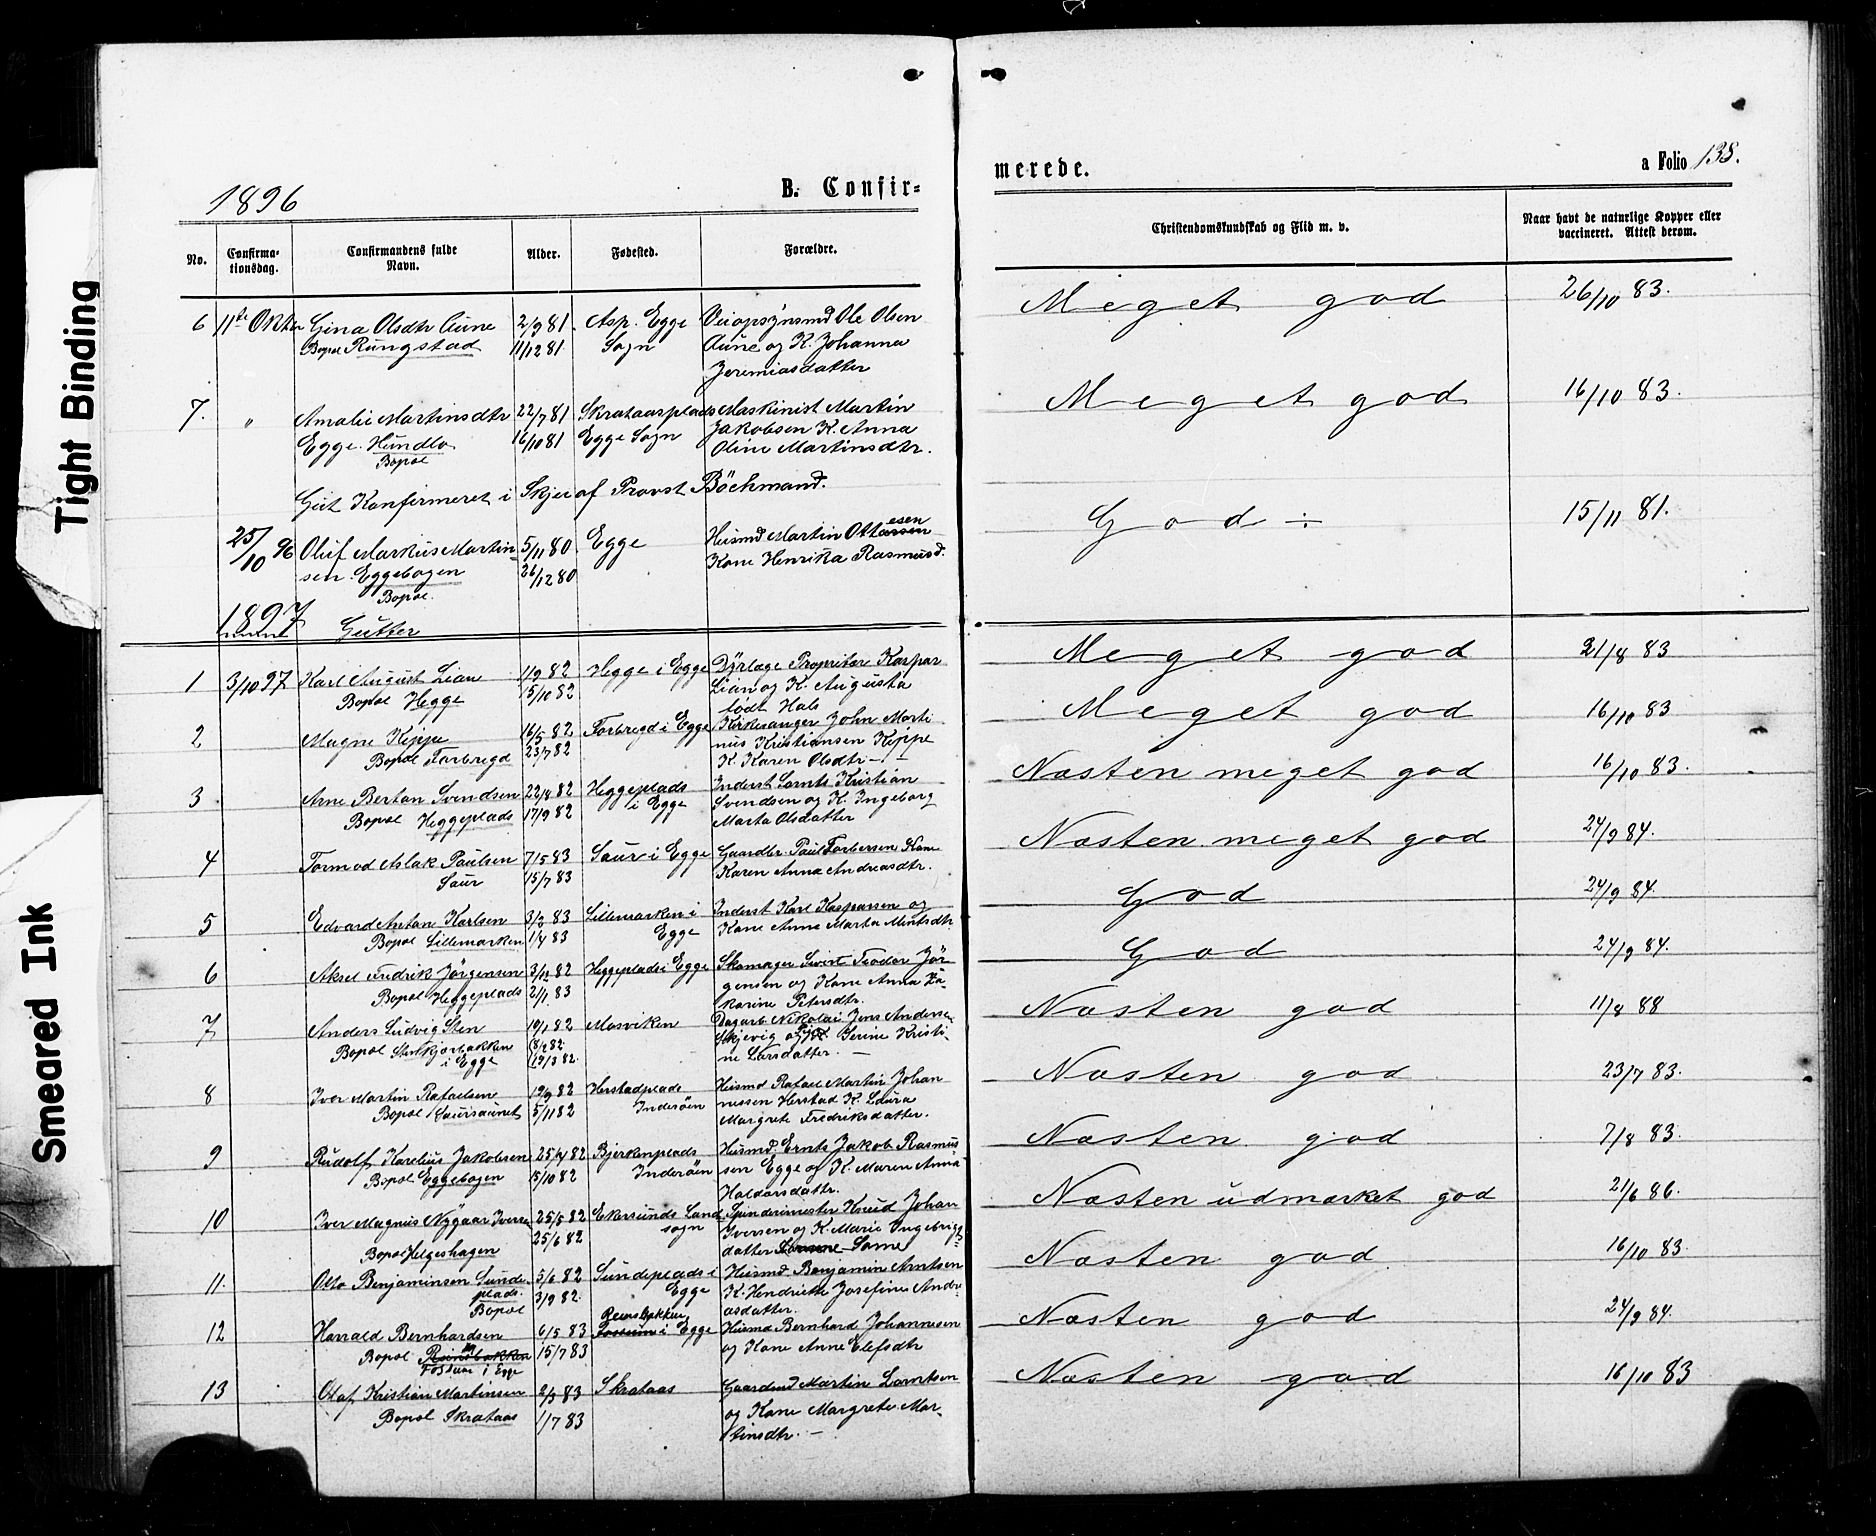 Tight Binding
Smeared Ink
1896
B. Confir=
merede.
a Folio 138.
No.
Confirma-
tionsdag.
Confirmandens fulde
Navn.
Alder.
Fødested.
Forældre.
Christendomskundskab og Flid m. v.
Naar havt de naturlige Kopper eller
vaccineret. Attest derom.
6 11te Oktbr Gina Olsdtr Aune 2/9 81 Asp. Egge Veiopsynsmd Ole Olsen Meget god 26/10 83.
Bopæl Rungstad 11/12 81 Sogn Aune og K. Johanna
Jeremiasdatter
7. " Amalie Martinsdtr 22/7 81 Skrataasplads Maskinist Martin Meget god 16/10 83.
Egge. Hundlo 16/10 81 Egge Sogn Jakobsen K. Anna
Bopæl Oline Martinsdtr.
Gut Konfirmeret i Skjer af Provst Böckmand.
25/10 96 Oluf Markus Martin 5/11 80 Egge Husmd Martin Ottaresen God ÷ 15/11 81.
sen. Eggebogen 26/12 80 Kone Henrika Rasmusd.
Bopæl.
1897
Gutter
1 3/10 97 Karl August Lian 1/9 82 Hegge i Egge Dyrlæge Propritær Kaspar Meget god 21/8 83
Bopæl Hegge 15/10 82 Lian og K. Augusta
født Hals
2 Magne Kippe 16/5 82 Forbregd i Egge Kirkesanger John Marti Meget god 16/10 83
Bopæl Forbregd 23/7 82 nus Kristiansen Kippe
K. Karen Olsdtr
3 Arne Bertan Svendsen 22/8 82 Heggeplads Inderst Lornts Kristian Næsten meget god 16/10 83.
Bopæl Heggeplads 17/9 82 i Egge Svendsen og K. Ingeborg
Marta Olsdatter
4 Tormod Aslak Paulsen 7/5 83 Saur i Egge Gaardbr. Paul Torbersen Kone Næsten meget god 24/9 84.
Saur 15/7 83 Karen Anna Andreasdtr.
5 Edvard Antan Karlsen 3/2 83 Lillemarken i Inderst Karl Kasparsen og God 24/9 84.
Bopæl Lillemarken 1/4 83 Egge Kone Anne Marta Mentsdtr
6 Aksel Fredrik Jörgensen 3/12 82 Heggeplads i Egge Skomager Sivert Teodor Jör God 24/9 84.
Bopæl Heggeplads 2/1 83 gensen og Kone Anna Ka-
karine Petersdtr.
7 Anders Ludvig Sten 19/1 82 Mosviken Dagarb Nikolai Jens Anderse. Næsten god 11/8 88
Bopæl Stenkjærbakken 8/2 82 Skjevig og K Serine Kristi-
i Egge 19/3 82. ne Larsdatter.
8 Iver Martin Rafaelsen 19/9 82 Herstadplads Husmd Rafael Martin Johan Næsten god 23/7 83.
Bopæl Saursaunet 5/11 82 Inderöen nessen Herstad K. Laura
Margrete Fredriksdatter.
9 Rudolf Karelius Jakobsen 25/4 82 Bjerkenplads Husmd. Ernts Jakob Rasmus Næsten god 7/8 83.
Bopæl Eggebogen 15/10 82 Inderöen sen Egge og K. Maren Anna
Haldorsdattr.
10 Iver Magnus Nygaar Iversen 25/5 82 Ekersunds Land Gjendrimester Knud Johan Næsten udmærket god 21/6 86.
Bopæl Helgeshagen 25/6 82 sogn Iversen og K. Marie Ingebrigts
datter Same
11. Otto Benjaminsen Sunde 5/6 82 Sundeplads i Husmd Benjamin Arntsen Næsten god 16/10 83.
plads. 3/9 82. Egge K. Hendriette Josefine Andr
Bopæl easdatter.
12 Harrald Bernhardsen 6/5 83 Reinsbakken i Egge Husmd Bernhard Johannesen Næsten god 24/9 84.
Bopæl Reinsbakken 15/7 83 og Kone Anne Elefsdtr
Fossum i Egge
13 Olaf Kristian Martinsen 2/3 83 Skrataas Gaardmd Martin Lorntsen Næsten god 16/10 83
Bopæl Skrataas 1/7 83 og Kone Margrete Mar
tinsdtr.